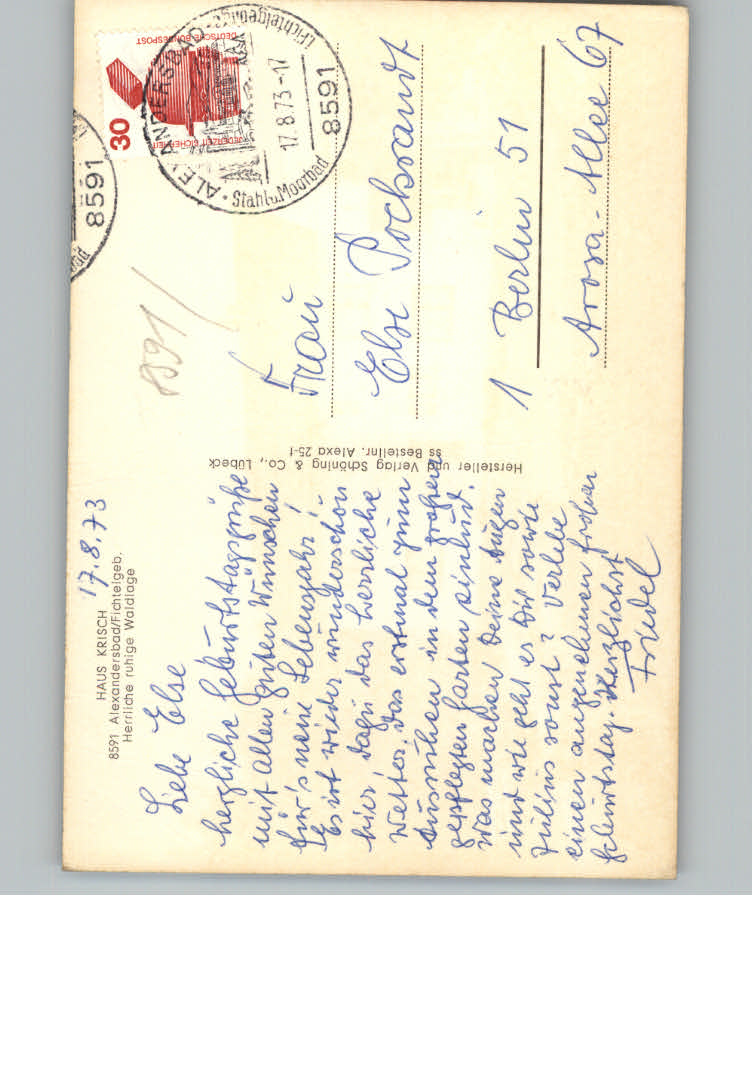 HAUS KRISCH
8591 Alexandersbad/Fichtelgeb.
Herrliche ruhige Waldlage
17.8.73
Liebe Else
herzliche Geburtstagsgrüße
mit allen guten Wünschen
für's neue Lebensjahr!
Es ist wieder wunderschön
hier, dazu das herrliche
Wetter. Das erstmal zum
Ausruhen in dem großen
gepflegten Garten einlud.
Was machen Deine Augen
und wie geht es Dir sowie
Julius sonst? Verlebe
einen angenehmen frohen
Geburtstag. Herzlichst
Friedel
Hersteller und Verlag Schöning & Co., Lübeck
ss Bestellnr. Alexa 25-f
8591/
DEUTSCHE BUNDESPOST
JEDERZEIT SICHERHEIT
30
ALEXANDERSBAD
i. Fichtelgebirge
17.8.73-17
8591
Stahl u. Moorbad
8591
Frau
Else Pockrandt
1 Berlin 51
Arosa-Allee 67